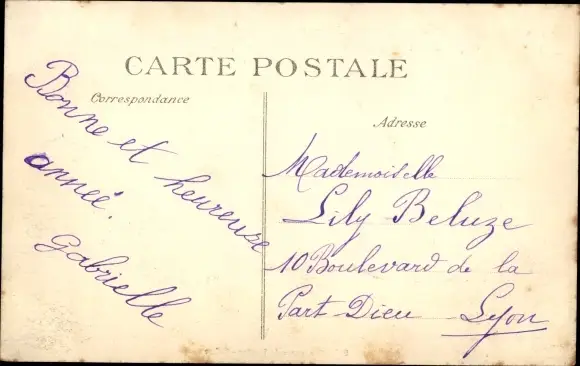 CARTE POSTALE
Correspondance
Adresse
Bonne et heureuse
année.
Gabrielle
Mademoiselle
Lily Beluze
10 Boulevard de la
Part-Dieu Lyon